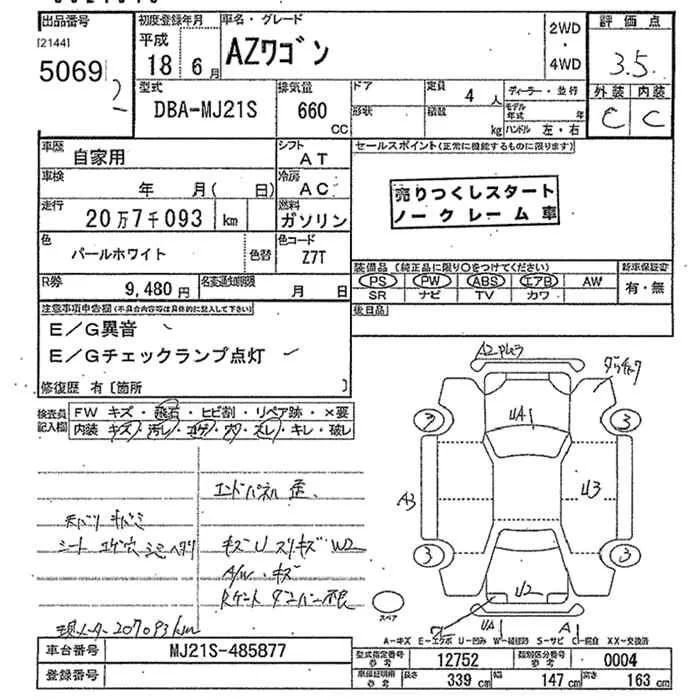 出品番号
[2144]
5069
2
初度登録年月
平成
18 6月
車名・グレード
AZワゴン
2WD
・
4WD
評価点
3.5
外装 内装
C C
型式
DBA-MJ21S
排気量
660
CC
ドア
形状
定員
4人
積数
kg
ディーラー・並行
モデル年式 年
ハンドル 左・右
車歴
自家用
シフト
AT
車検
年 月( 日)
冷房
AC
走行
20万7千093 km
燃料
ガソリン
色
パールホワイト
色替
色コード
Z7T
R券
9,480円
名変通知期限
月 日
セールスポイント(正常に機能するものに限ります)
売りつくしスタート
ノークレーム車
装備品(純正品に限り○をつけてください)
PS PW ABS エアB AW
SR ナビ TV カワ
新車保証書
有・無
後日品
注意事項申告欄(不具合内容等は具体的に記入して下さい)
E/G異音
E/Gチェックランプ点灯
修復歴 有〔箇所 〕
検査員
記入欄
FW キズ・飛石・ヒビ割・リペア跡・×要
内装 キズ・汚レ・コゲ・穴・スレ・キレ・破レ
エンドパネル 歪
天バリ キバミ
シート コゲ穴 シミ ヘタリ
キズ U スリキズ W2
A/W キズ
Rゲート ダンパー不良
現メーター207093km
A2
UA1
3
3
A3
U3
3
3
U2
UA1
A1
スペア
A-キズ E-エクボ U-凹み W-補修跡 S-サビ C-腐食 XX-交換済
車台番号
MJ21S-485877
登録番号
型式指定番号
参考
12752
類別区分番号
参考
0004
車庫証明用
参考
長さ
339 cm
幅
147 cm
高さ
163 cm